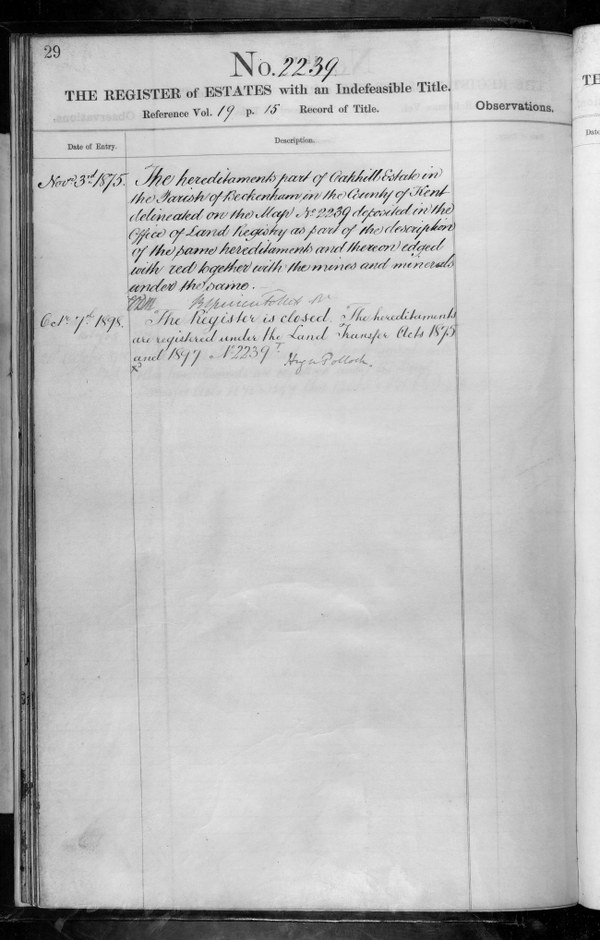 29
No. 2239
THE REGISTER of ESTATES with an Indefeasible Title.
Reference Vol. 19 p. 15 Record of Title.
Observations.
Date of Entry.
Description.
Novr. 3rd 1875.
The hereditaments part of Oakhill Estate in
the Parish of Beckenham in the County of Kent
delineated on the Map No 2239 deposited in the
Office of Land Registry as part of the description
of the same hereditaments and thereon edged
with red together with the mines and minerals
under the same.
Octr. 7th 1898.
The Register is closed. The hereditaments
are registered under the Land Transfer Acts 1875
and 1897 No 2239
Pollock.
TH
Date